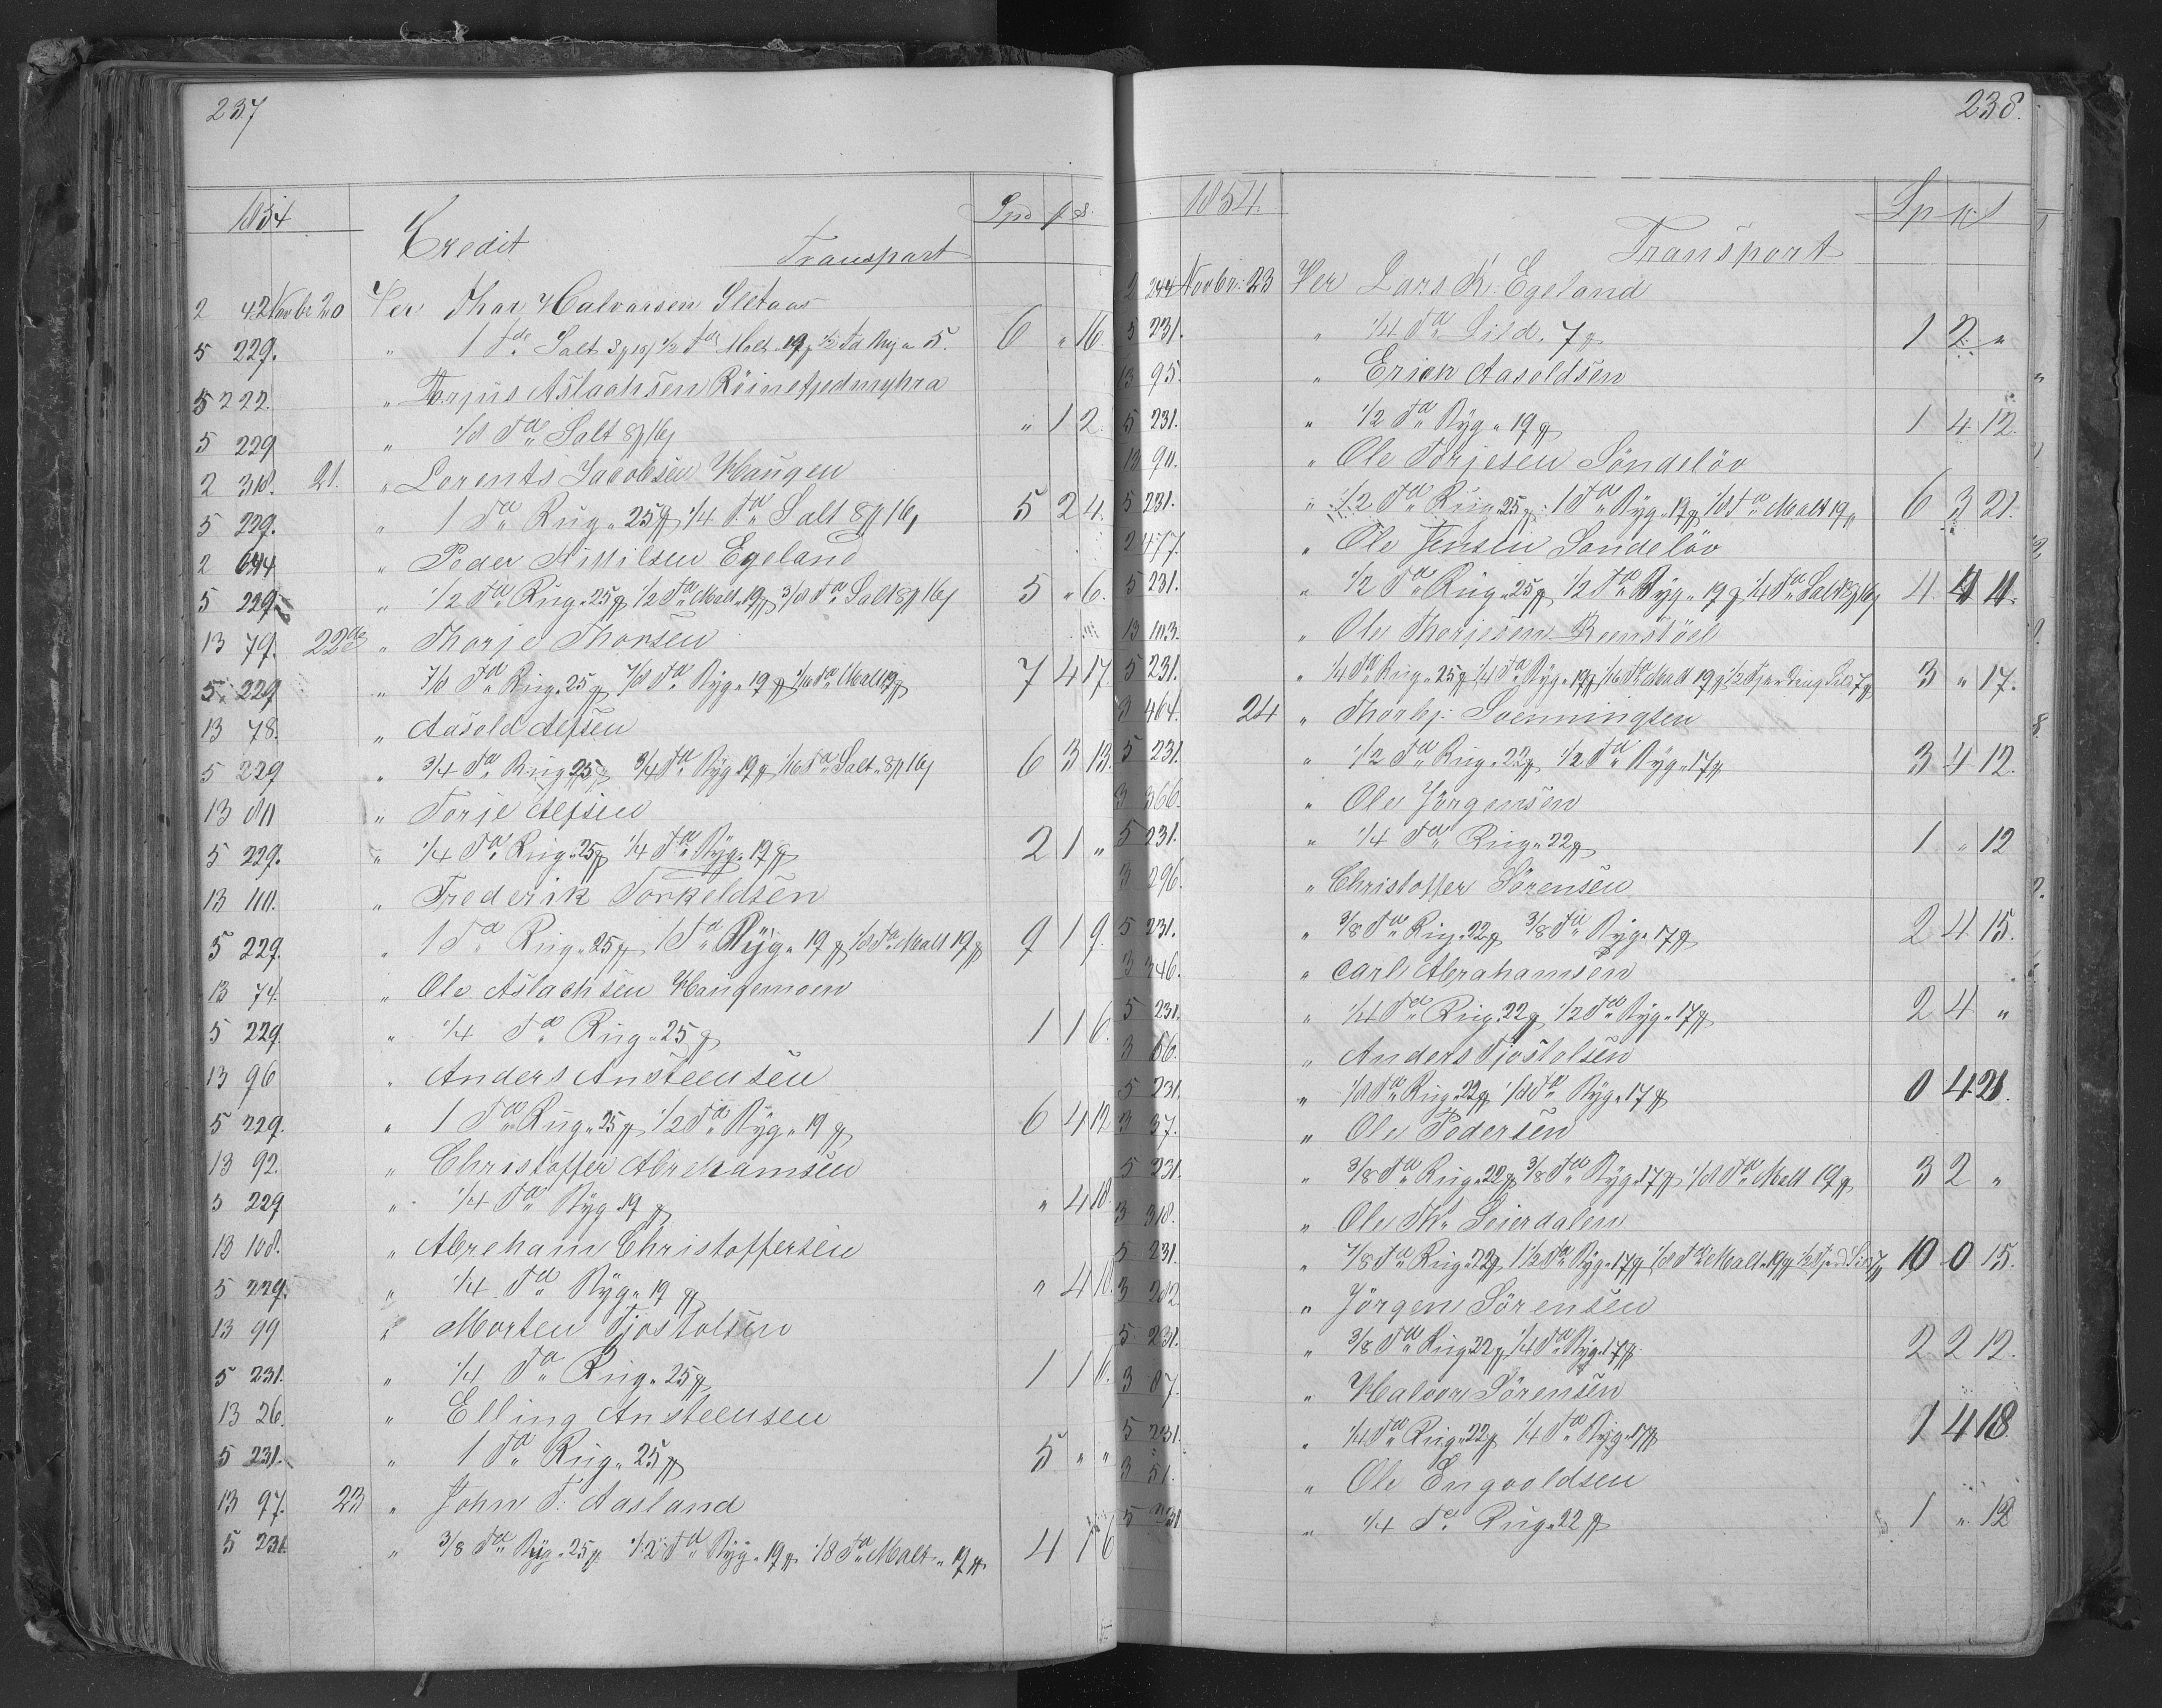 237
1854
Credit Transport Spd ꝑ s.
2 42 Novbr 20 Per Thor Halvorsen Sletaas
5 229. " 1 Tde Salt 1/2 Td Malt 19 1/2 Td Byg a 5. 6 " 16.
5 222. " Terjus Aslachsen
5 229 " 1/8 Td Salt 8/16 " 1 2.
2 318. 21. " Lorents Jacobsen Haugen
5 229. " 1 Td Rug " 25 1/4 Td Salt 8/16 5 2 4.
2 " Peder Nilsen Egeland
5 229. " 1/2 Td Rug " 25 1/2 Td Malt " 19 3/8 Td Salt 8/16 5 " 6.
13 79. 22de " Thorje Thorsen
5 229 " 7/8 Td Rug " 25 7/8 Td Byg " 19 1/16 Td Malt 19 7 4 17.
13 78. " Aasold Alfsen
5 229 " 3/4 Td Rug 25 3/4 Td Byg 19 1/16 Td Salt " 8/16 6 3 13.
13 80 " Torje Alfsen
5 229. " 1/4 Td Rug " 25 1/4 Td Byg " 19 2 1 "
13 " Frederik Torkeldsen
5 229. " 1 Td Rug " 25 1 Td Byg " 19 1/8 Td Malt 19 9 1 9.
13 74. " Ole Aslachsen Haugemoen
5 229. " 1/4 Td Rug " 25 1 1 6.
13 96 " Anders Ansteensen
5 229. " 1 Td Rug " 25 1/2 Td Byg " 19 6 4 12
13 92. " Christoffer Abrehamsen
5 229 " 1/4 Td Byg 19 " 4 18.
13 108. " Abreham Christoffersen
5 229. " 1/4 Td Byg " 19 " 4 18.
13 99 " Morten Tjostolsen
5 231. " 1/4 Td Rug " 25 1 1 6.
13 26. " Elling Ansteensen
5 231. " 1 Td Rug " 25 5 " "
13 97. 23 " John T. Aasland
5 231. " 3/8 Td Byg " 25 1/2 Td Byg " 19 1/8 Td Malt " 19 4 1 6
238.
1854.
Transport Sp
2 244 Novbr. 23 Per Lars K. Egeland
5 231. " 1/4 Td Sild. 7 1 2 "
13 95. " Erick Aasoldsen
5 231. " 1/2 Td Byg " 19 1 4 12.
13 90. " Ole Torjesen Söndelöv
5 231. " 1/2 Td Rug " 25 1 Td Byg " 19 1/8 Td Malt 19 6 3 21.
2 477. " Ole Jensen Sondelöv
5 231. " 1/2 Td Rug " 25 1/2 Td Byg " 19 1/4 Td Salt 8/16 4 4
13 103. " Ole Thorjesen Reinstöel
5 231. " 1/4 Td Rug " 25 1/4 Td Byg " 19 1/16 Td Malt 19 1/2 Sild 7 3 " 17.
3 464. 24 " Thorbj. Svenningsen
5 231. " 1/2 Td Rug " 22 1/2 Td Byg " 17 3 4 12.
3 366. " Ole Jörgensen
5 231. " 1/4 Td Rug " 22 1 " 12
3 296. " Christoffer Sörensen
5 231. " 3/8 Td Rug " 22 3/8 Td Byg " 17 2 4 15.
3 346. " Carl Abrahamsen
5 231. " 1/4 Td Rug 22 1/2 Td Byg " 17 2 4 "
3 86. " Anders Tjostolsen
5 231. " 1/8 Td Rug " 22 1/8 Td Byg " 17 0 4 21.
3 37. " Ole Pedersen
5 231. " 3/8 Td Rug " 22 3/8 Td Byg " 17 1/8 Td Malt 19 3 2 "
3 318. " Ole Th. Seierdalen
5 231. " 7/8 Td Rug " 22 1 1/2 Td Byg " 17 1/8 Td Malt " 19 1/2 Sild 7 10 0 15.
3 282 " Jörgen Sörensen
5 231. " 3/8 Td Rug " 22 1/4 Td Byg " 17 2 2 12.
3 87. " Halvor Sörensen
5 231. " 1/4 Td Rug " 22 1/4 Td Byg " 17 1 4 18.
3 51. " Ole Engvoldsen
5 231 " 1/4 Td Rug " 22 1 " 12